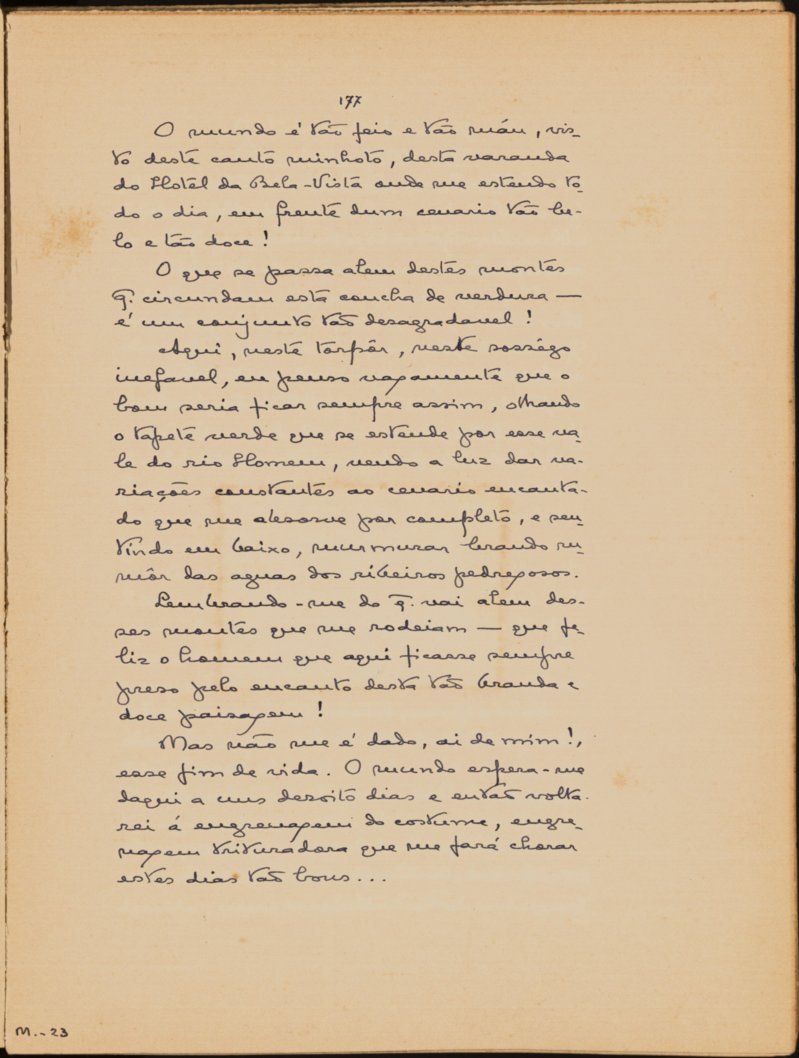 177
O mundo é tão feio e tão máu, vis-
to deste canto minhoto, desta varanda
do Hotel da Bela-Vista onde me estendo to-
do o dia, em frente dum cenario tão be-
lo e tão doce!
O que se passa alem destes montes
q. circundam esta concha de verdura —
é um conjunto tão desagradavel!
Aqui, neste torpôr, neste sossêgo
inefavel, eu penso vagamente que o
bom seria ficar sempre assim, olhando
o tapete verde que se estende por esse va-
le do rio Homem, vendo a luz dar va-
riações constantes ao cenario encanta-
do que me absorve por completo, e sen-
tindo em baixo, murmurar brando ru-
môr das aguas dos ribeiros pedregosos.
Lembrando-me do q. vai alem des-
ses montes que me rodeiam — que fe-
liz o homem que aqui ficasse sempre
preso pelo encanto desta tão branda e
doce paisagem!
Mas não me é dado, ai de mim!,
esse fim de vida. O mundo espera-me
daqui a uns dezoito dias e então volta-
rei á engrenagem do costume, engre-
nagem trituradora que me fará chorar
estes dias tão bons...
M.-23